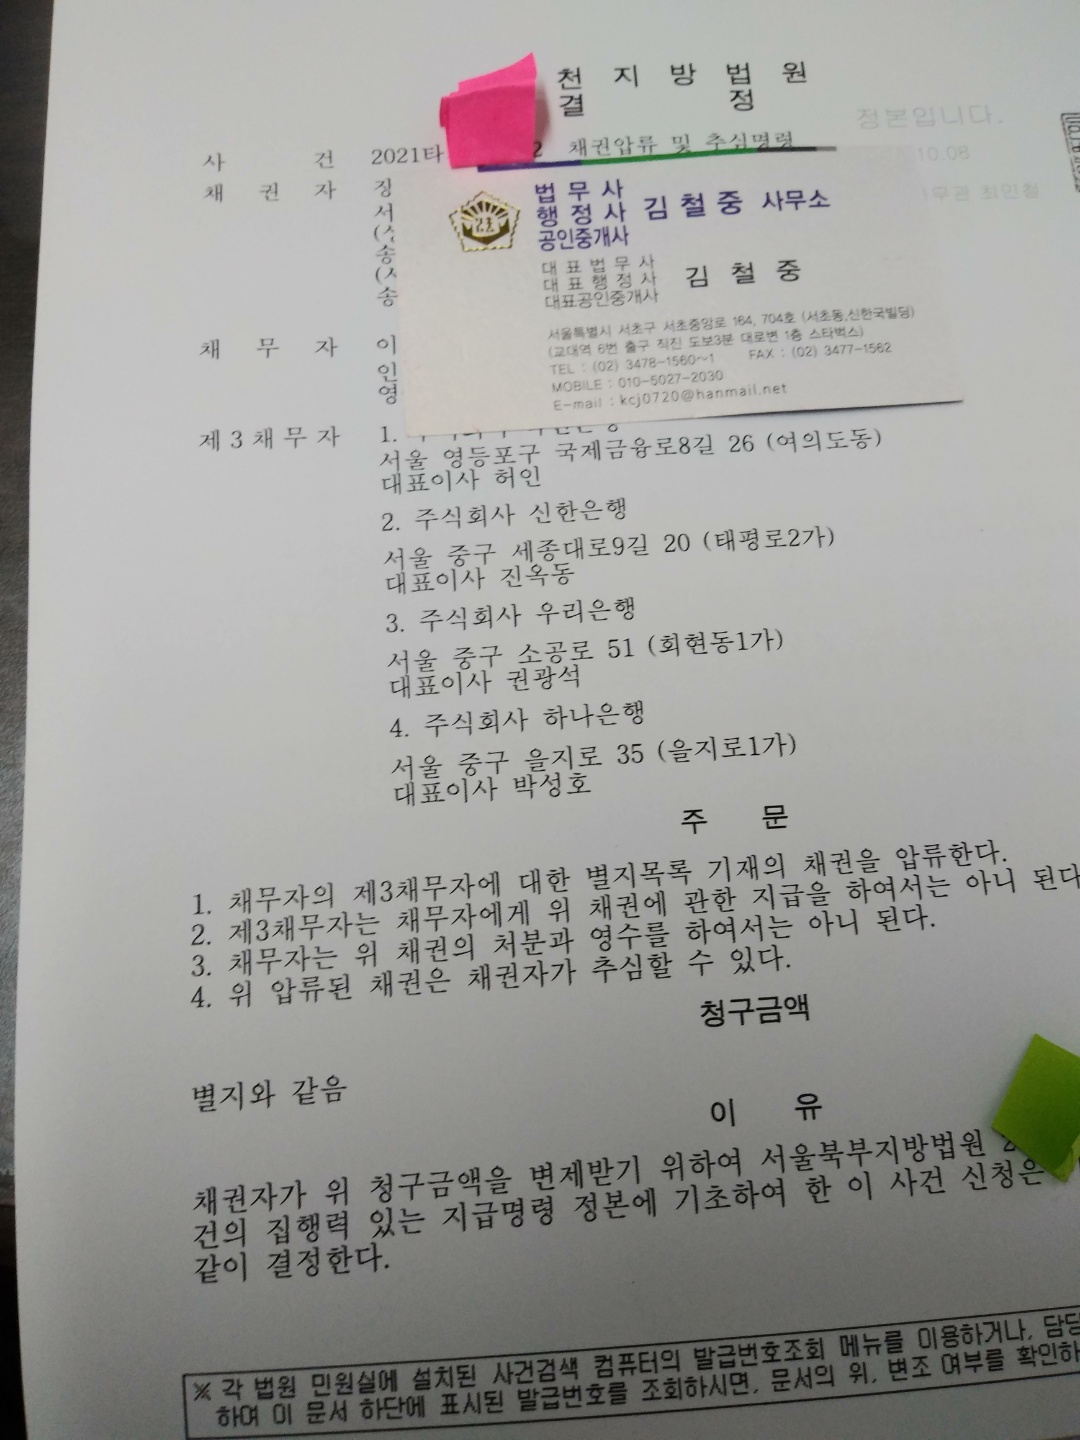 천 지 방 법 원
결 정
정본입니다.
사 건 2021타 2 채권압류 및 추심명령
10.08
채 권 자 정
사무관 최민철
서
송
송
법 무 사
행 정 사 김 철 중 사무소
공인중개사
대 표 법 무 사
대 표 행 정 사 김 철 중
대표공인중개사
서울특별시 서초구 서초중앙로 164, 704호 (서초동,신한국빌딩)
(교대역 6번 출구 직진 도보3분 대로변 1층 스타벅스)
TEL : (02) 3478-1560~1 FAX : (02) 3477-1562
MOBILE : 010-5027-2030
E-mail : kcj0720@hanmail.net
채 무 자 이
인
영
제 3 채 무 자 1.
서울 영등포구 국제금융로8길 26 (여의도동)
대표이사 허인
2. 주식회사 신한은행
서울 중구 세종대로9길 20 (태평로2가)
대표이사 진옥동
3. 주식회사 우리은행
서울 중구 소공로 51 (회현동1가)
대표이사 권광석
4. 주식회사 하나은행
서울 중구 을지로 35 (을지로1가)
대표이사 박성호
주 문
1. 채무자의 제3채무자에 대한 별지목록 기재의 채권을 압류한다.
2. 제3채무자는 채무자에게 위 채권에 관한 지급을 하여서는 아니 된다
3. 채무자는 위 채권의 처분과 영수를 하여서는 아니 된다.
4. 위 압류된 채권은 채권자가 추심할 수 있다.
청구금액
별지와 같음
이 유
채권자가 위 청구금액을 변제받기 위하여 서울북부지방법원
건의 집행력 있는 지급명령 정본에 기초하여 한 이 사건 신청은
같이 결정한다.
※ 각 법원 민원실에 설치된 사건검색 컴퓨터의 발급번호조회 메뉴를 이용하거나, 담당
하여 이 문서 하단에 표시된 발급번호를 조회하시면, 문서의 위, 변조 여부를 확인하